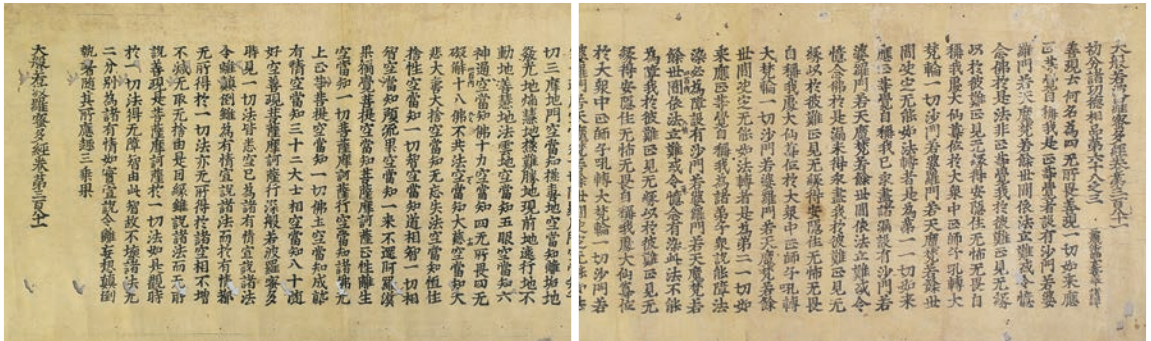 大般若波羅蜜多經卷第三百八十一
初分諸功德相品第六十八之三
善現云何名為四无所畏善現一切如來應
正等覺自稱我是正等覺者設有沙門若婆
羅門若天魔梵若餘世間依法立難或令憶
念佛於是法非正等覺我於彼難正見无緣
以於彼難正見无緣得安隱住无怖无畏自
稱我處大仙尊位於大眾中正師子吼轉大
梵輪一切沙門若婆羅門若天魔梵若餘世
間决定无能如法轉者是為第一一切如來
應正等覺自稱我已永盡諸漏設有沙門若
婆羅門若天魔梵若餘世間依法立難或令
憶念佛於是漏未得永盡我於彼難正見无
緣以於彼難正見无緣得安隱住无怖无畏
自稱我處大仙尊位於大眾中正師子吼轉
大梵輪一切沙門若婆羅門若天魔梵若餘
世間决定无能如法轉者是為第二一切如
來應正等覺自稱我為諸弟子眾說能障法
染必為障設有沙門若婆羅門若天魔梵若
餘世間依法立難或令憶念有染此法不能
為障我於彼難正見无緣以於彼難正見无
緣得安隱住无怖无畏自稱我處大仙尊位
於大眾中正師子吼轉大梵輪一切沙門若
切三摩地門空當知極喜地空當知離垢地
發光地焰慧地極難勝地現前地遠行地不
動地善慧地法雲地空當知五眼空當知六
神通空當知佛十力空當知四无所畏四无
礙解十八佛不共法空當知大慈空當知大
悲大喜大捨空當知无忘失法空當知恒住
捨性空當知一切智空當知道相智一切相
智空當知預流果空當知一來不還阿羅漢
果獨覺菩提空當知菩薩摩訶薩正性離生
空當知一切菩薩摩訶薩行空當知諸佛无
上正等菩提空當知一切佛土空當知成熟
有情空當知三十二大士相空當知八十隨
好空善現菩薩摩訶薩行深般若波羅蜜多
時見一切法皆悉空已為諸有情宣說諸法
令離顛倒雖為有情宣說諸法而於有情都
无所得於一切法亦无所得於諸空相不增
不減无取无捨由是因緣雖說諸法而无所
說善現是菩薩摩訶薩於一切法如是觀時
於一切法得无障智由此智故不壞諸法无
二分別為諸有情如實宣說令離妄想顛倒
執著隨其所應趣三乘果
大般若波羅蜜多經卷第三百八十一